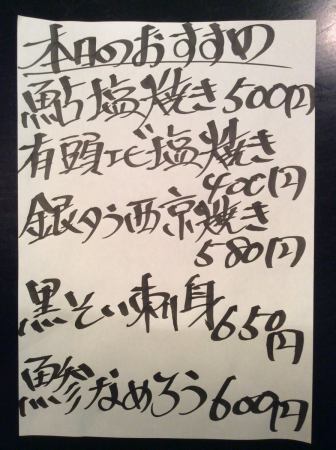 本日のおすすめ
鮎塩焼き500円
有頭エビ塩焼き
400円
銀ダラ西京焼き
580円
黒そい刺身
650円
鯵なめろう600円